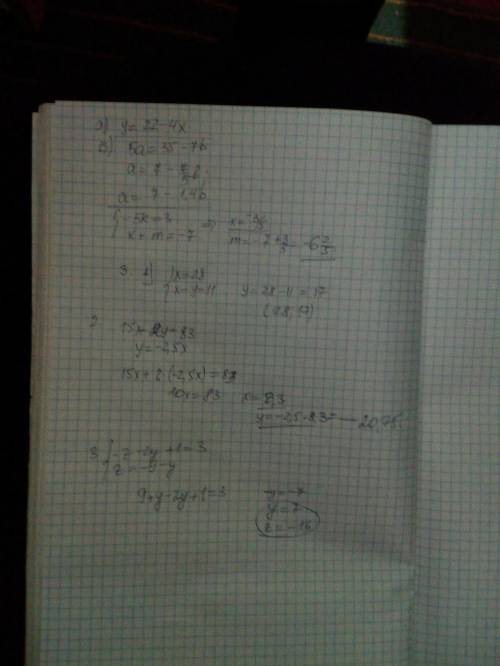 y = 22 - 4x
5a = 35 - 7b
a = 7 - 1,4b
{ -5k = 3
k + m = -7
{ x = 28
x - y = 11 y = 28 - 11 = 17
(28; 17)
2
15x + 2y = 83
y = -2,5x
15x + 2·(-2,5x) = 83
10x = 83 x = 8,3
y = -2,5·8,3 = -20,75
3 { -z - 2y + 1 = 3
z = -9 - y
9 + y - 2y + 1 = 3 -y = -7
y = 7
z = -16